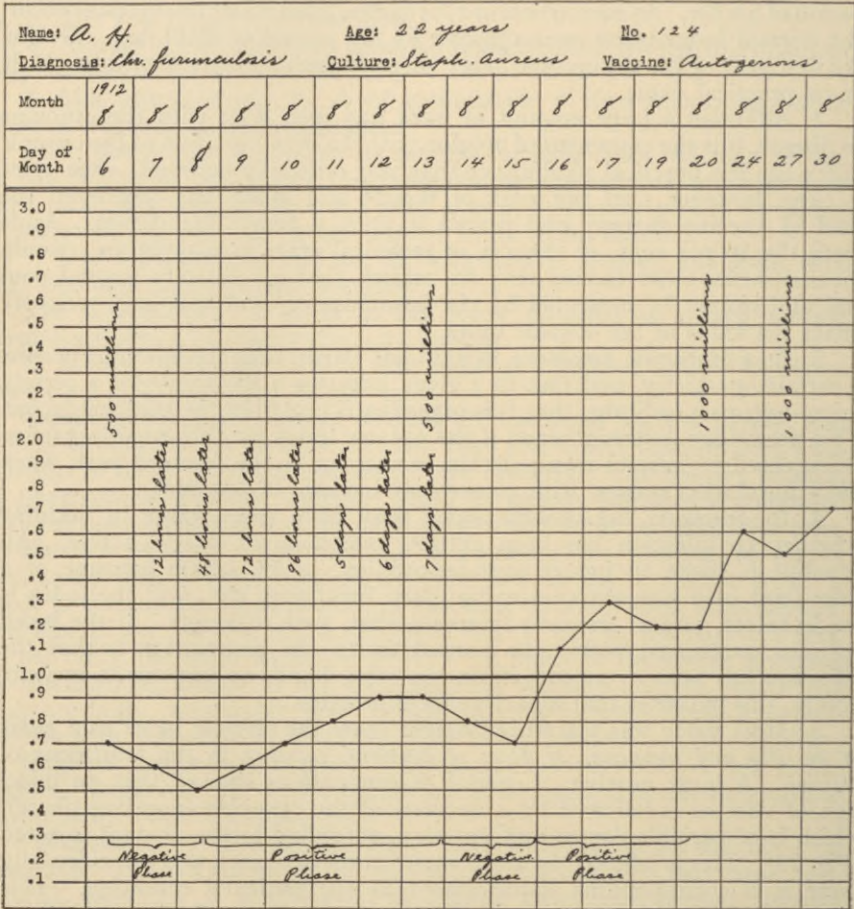 Name: A. H. Age: 22 years No. 124
Diagnosis: Chr. furunculosis Culture: Staph. Aureus Vaccine: Autogenous
1912
Month 8 8 8 8 8 8 8 8 8 8 8 8 8 8 8 8 8
Day of Month 6 7 8 9 10 11 12 13 14 15 16 17 19 20 24 27 30
3.0
.9
.8
.7
.6
.5
.4
.3
.2
.1
2.0
.9
.8
.7
.6
.5
.4
.3
.2
.1
1.0
.9
.8
.7
.6
.5
.4
.3
.2
.1
500 millions
12 hours later
48 hours later
72 hours later
96 hours later
5 days later
6 days later
7 days later 500 millions
1000 millions
1000 millions
Negative Phase
Positive Phase
Negative Phase
Positive Phase